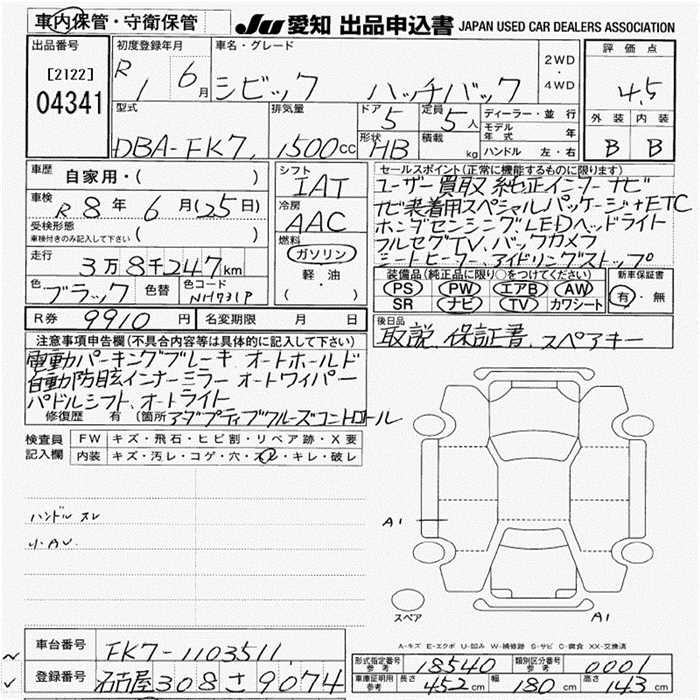 車内保管・守衛保管
JU 愛知 出品申込書 JAPAN USED CAR DEALERS ASSOCIATION
出品番号
[2122]
04341
初度登録年月
R 1 6月
車名・グレード
シビック ハッチバック
2WD
・
4WD
評価点
4.5
外装 内装
B B
型式
DBA-FK7
排気量
1500cc
ドア 5
定員 5人
形状 HB
積載 kg
ディーラー・並行
モデル年式 年
ハンドル 左・右
車歴
自家用・( )
車検
R 8年 6月(25日)
受検形態
車検付きのみ記入して下さい ( )
走行
3万8千247km
色 ブラック 色替 色コード NH731P
シフト
IAT
冷房
AAC
燃料
ガソリン
軽・油
( )
セールスポイント(正常に機能するものに限ります)
ユーザー買取 純正インターナビ
ナビ装着用スペシャルパッケージ+ETC
ホンダセンシング LEDヘッドライト
フルセグTV、バックカメラ
シートヒーター、アイドリングストップ
装備品(純正品に限り○をつけてください)
PS PW エアB AW
SR ナビ TV カワシート
新車保証書
有・無
R券 9910円 名変期限 月 日
後日品
取説、保証書、スペアキー
注意事項申告欄(不具合内容等は具体的に記入して下さい)
電動パーキングブレーキ オートホールド
自動防眩インナーミラー オートワイパー
パドルシフト、オートライト
修復歴 有 (箇所 アダプティブクルーズコントロール
検査員記入欄
FW キズ・飛石・ヒビ割・リペア跡・X要
内装 キズ・汚レ・コゲ・穴・スレ・キレ・破レ
ハンドル スレ
A1
スペア
A1
A-キズ E-エクボ U-凹み W-補修跡 S-サビ C-腐食 XX-交換済
車台番号 FK7-1103511
登録番号 名古屋 308 さ 9074
形式指定番号 参考 18540 類別区分番号 参考 0001
車庫証明用 参考 長さ 452cm 幅 180cm 高さ 143cm